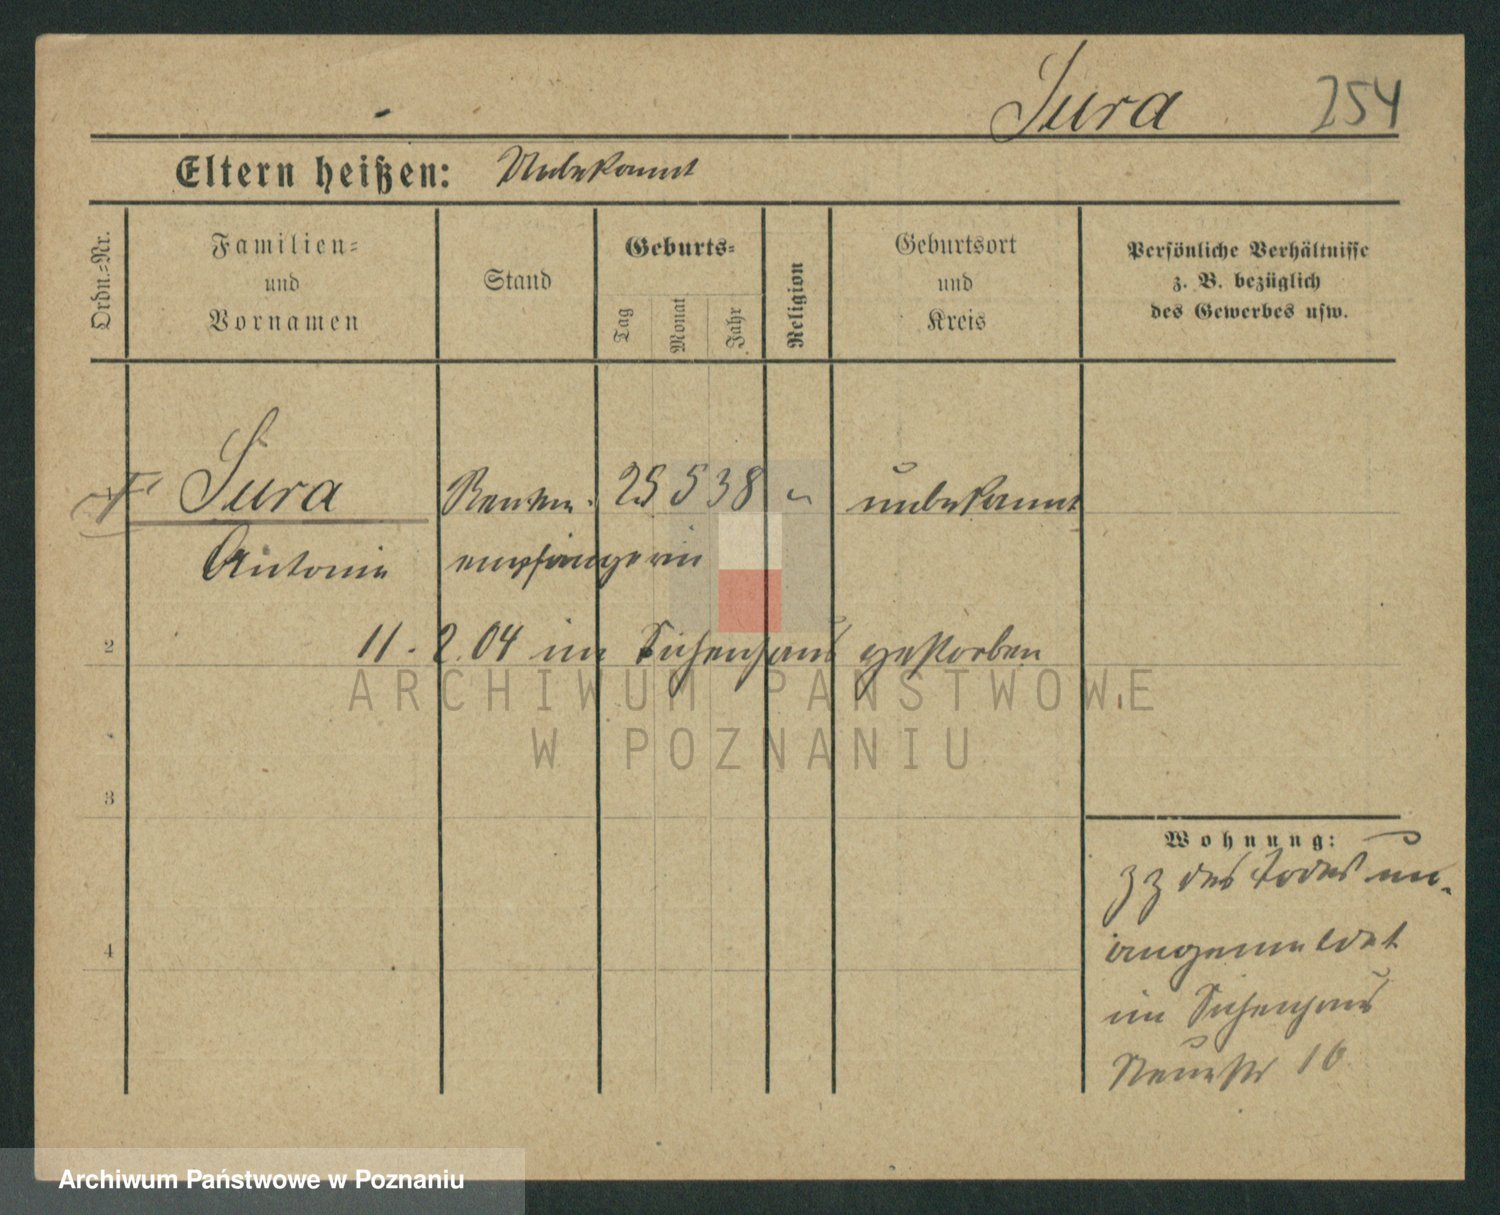 Sura 254
Eltern heißen: Unbekannt
Ordn.=Nr.
Familien=
und
Vornamen
Stand
Geburts=
Tag
Monat
Jahr
Religion
Geburtsort
und
Kreis
Persönliche Verhältnisse
z. B. bezüglich
des Gewerbes usw.
Sura Renten- 25 5 38 unbekannt
Antonie empfängerin
2 11. 2. 04 im Siechenhaus gestorben
ARCHIWUM PAŃSTWOWE
W POZNANIU
3
Wohnung:
zz des Todes un-
4 angemeldet
im Siechenhaus
Neuestr 10
Archiwum Państwowe w Poznaniu